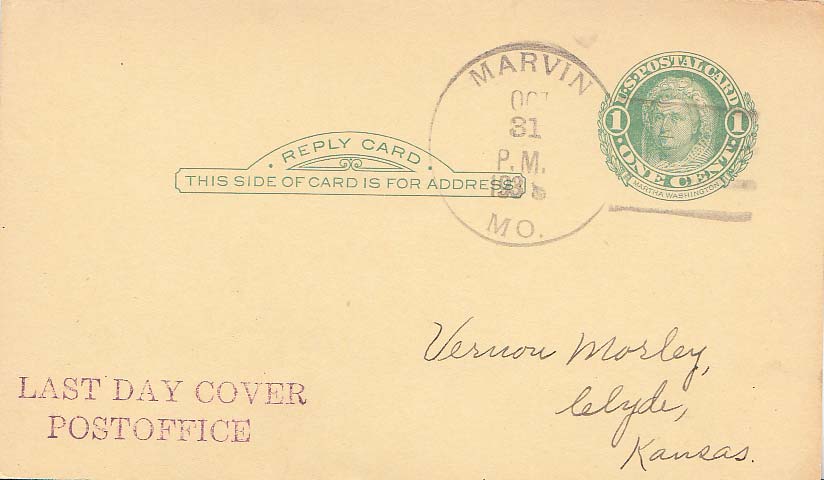 MARVIN
OCT
31
P.M.
MO.
U.S. POSTAL CARD
1 1
ONE CENT
MARTHA WASHINGTON
REPLY CARD
THIS SIDE OF CARD IS FOR ADDRESS
Vernon Morley,
Clyde,
Kansas.
LAST DAY COVER
POSTOFFICE